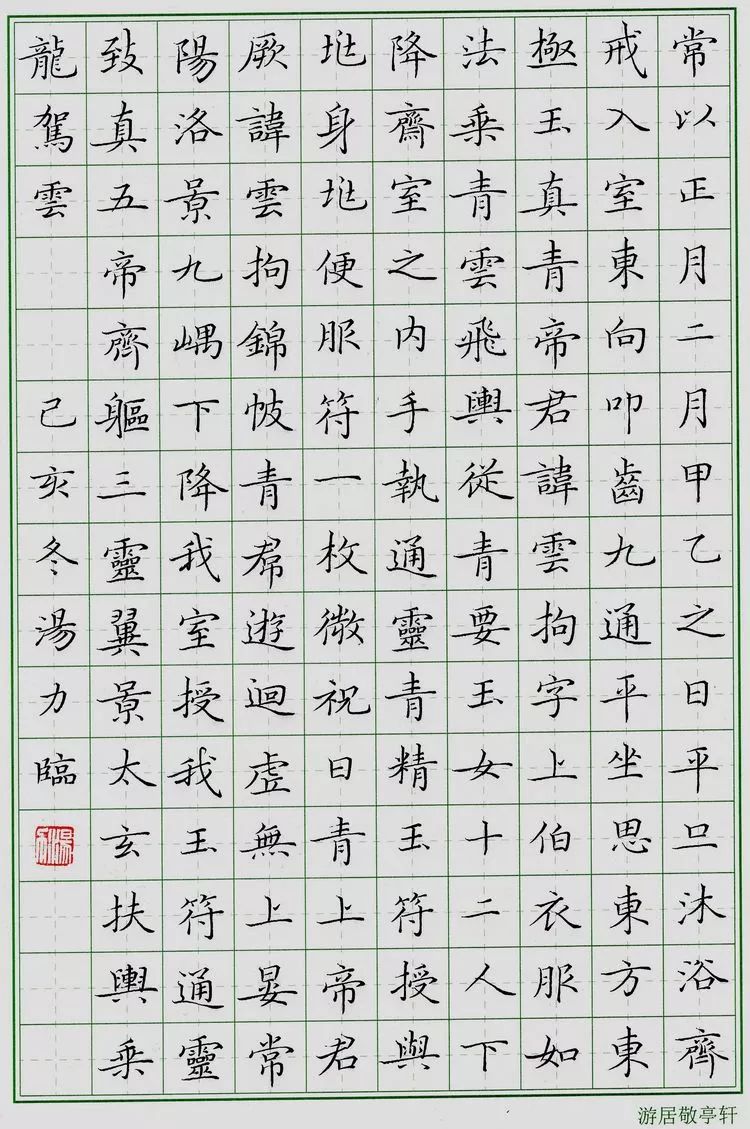 常以正月二月甲乙之日平旦沐浴齊
戒入室東向叩齒九通平坐思東方東
極玉真青帝君諱雲拘字上伯衣服如
法乗青雲飛輿從青要玉女十二人下
降齋室之内手執通靈青精玉符授與
兆身兆便服符一枚微祝曰青上帝君
厥諱雲拘錦帔青帬遊迴虛無上晏常
陽洛景九嵎下降我室授我玉符通靈
致真五帝齊軀三靈翼景太玄扶輿乗
龍駕雲
己亥冬湯力臨
游居敬亭轩